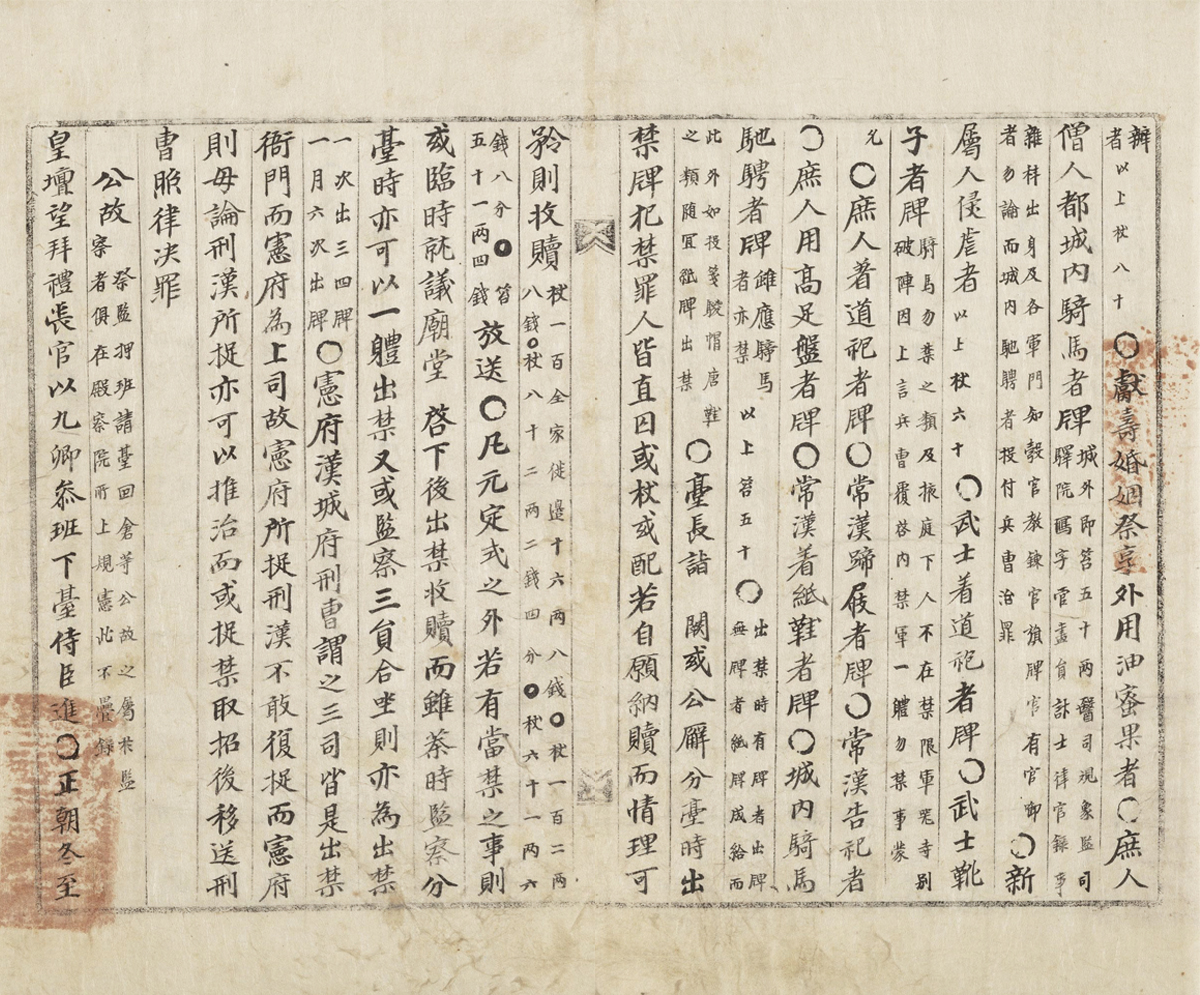 辦者以上杖八十〇獻壽婚姻祭享外用油蜜果者〇庶人
僧人都城內騎馬者牌城外卽笞五十兩醫司現象監司譯院寫字官畫員計士律官錄事
雜科出身及各軍門知彀官敎鍊官旗牌官有官啣者勿論而城內馳騁者投付兵曹治罪〇新
屬人侵虐者以上杖六十〇武士着道袍者牌〇武士靴
子者牌騎馬勿禁之類及掖庭下人不在禁限軍器寺別破陣因上言兵曹覆啓內禁軍一體勿禁事蒙
允〇庶人着道袍者牌〇常漢蹄屐者牌〇常漢告祀者
〇庶人用高足盤者牌〇常漢着紙鞋者牌〇城內騎馬
馳騁者牌雖應騎馬者亦禁以上笞五十〇出禁時有牌者出牌無牌者紙牌成給而
此外如後笺䯋帽唐鞋之類隨宜紙牌出禁〇臺長詣 闕或公廨分臺時出
禁牌犯禁罪人皆直囚或杖或配若自願納贖而情理可
矜則收贖杖一百全家徙邊十六兩八錢〇杖一百二兩八錢〇杖八十二兩二錢四分〇杖六十一兩六
錢八分〇笞五十一兩四錢放送〇凡元定式之外若有當禁之事則
或臨時就議廟堂 啓下後出禁收贖而雖茶時監察分
臺時亦可以一體出禁又或監察三員合坐則亦爲出禁
一次出三四牌一月六次出牌〇憲府漢城府刑曹謂之三司皆是出禁
衙門而憲府爲上司故憲府所捉刑漢不敢復捉而憲府
則毋論刑漢所捉亦可以推治而或捉禁取招後移送刑
曹照律決罪
公故祭監押班請臺回倉等公故之屬於監察者俱在殿察院所上規憲此不疊錄
皇壇望拜禮長官以九卿叅班下臺侍臣進〇正朝冬至